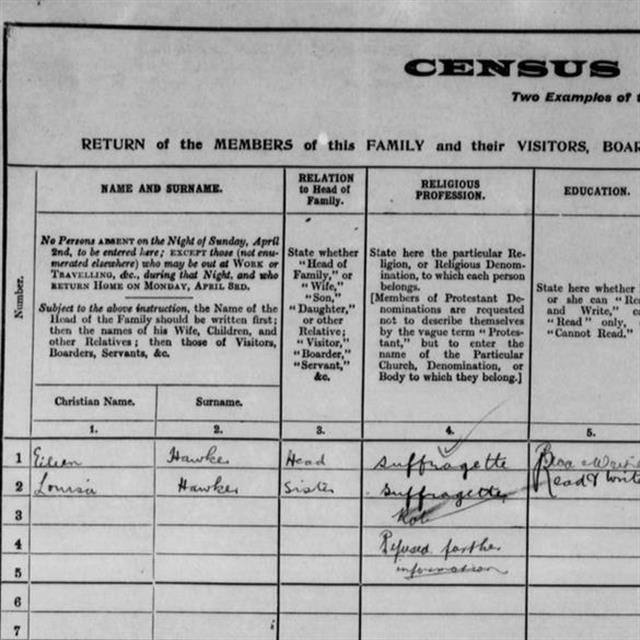 CENSUS
Two Examples of t
RETURN of the MEMBERS of this FAMILY and their VISITORS, BOAR
NAME AND SURNAME.
RELATION
to Head of
Family.
RELIGIOUS
PROFESSION.
EDUCATION.
Number.
No Persons ABSENT on the Night of Sunday, April
2nd, to be entered here; EXCEPT those (not enu-
merated elsewhere) who may be out at WORK or
TRAVELLING, &c., during that Night, and who
RETURN HOME ON MONDAY, APRIL 3RD.
Subject to the above instruction, the Name of the
Head of the Family should be written first;
then the names of his Wife, Children, and
other Relatives; then those of Visitors,
Boarders, Servants, &c.
State whether
"Head of
Family," or
"Wife,"
"Son,"
"Daughter,"
or other
Relative;
"Visitor,"
"Boarder,"
"Servant,"
&c.
State here the particular Re-
ligion, or Religious Denom-
ination, to which each person
belongs.
[Members of Protestant De-
nominations are requested
not to describe themselves
by the vague term "Protes-
tant," but to enter the
name of the Particular
Church, Denomination, or
Body to which they belong.]
State here whether
or she can "Rea
and Write," c
"Read" only,
"Cannot Read."
Christian Name.
Surname.
1.
2.
3.
4.
5.
1 Eileen Hawker Head Suffragette
2 Louisa Hawker Sister Suffragette Read & write
3
4 Refused further
5 information
6
7